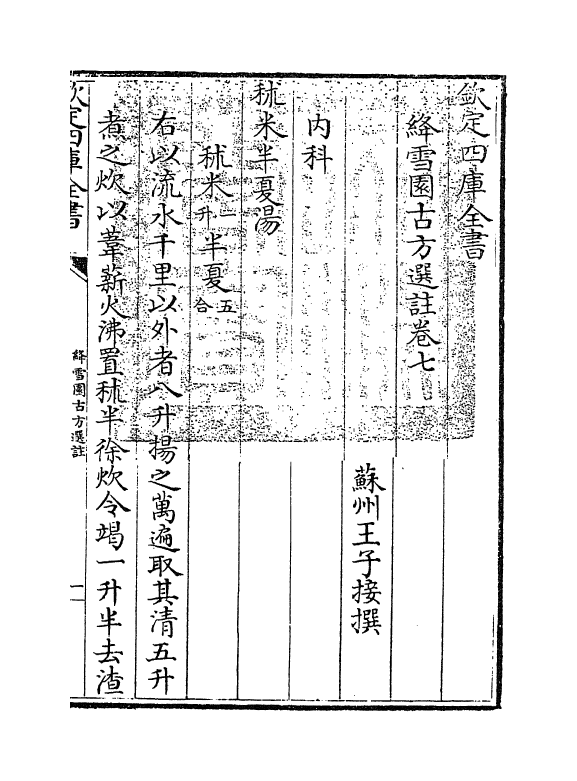 欽定四庫全書
絳雪園古方選註卷七
蘇州王子接撰
内科
秫米半夏湯
秫米一升半夏五合
右以流水千里以外者八升揚之萬遍取其清五升
煮之炊以葦薪火沸置秫半徐炊令竭一升半去渣
欽定四庫全書
絳雪園古方選註
一